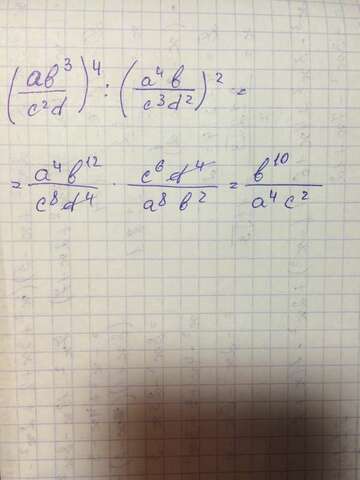 (ab³/c²d)⁴ : (a⁴b/c³d²)² =
= a⁴b¹²/c⁸d⁴ · c⁶d⁴/a⁸b² = b¹⁰/a⁴c²